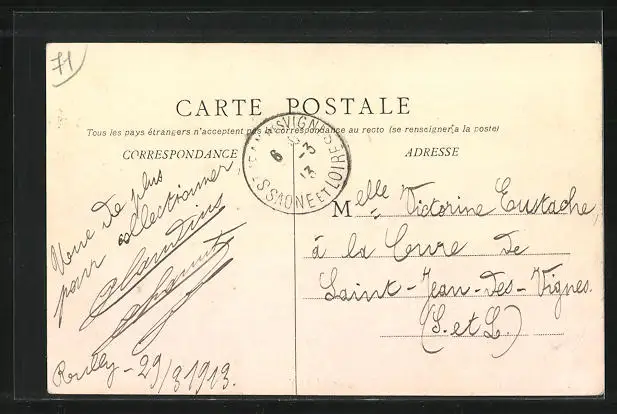 71
CARTE POSTALE
Tous les pays étrangers n'acceptent pas la correspondance au recto (se renseigner à la poste)
CORRESPONDANCE
ADRESSE
Vue de plus
pour collectionner
Claudius
Rully - 29/3 1913.
VIGNES
SAONE ET LOIRE
6
-3
13
Melle Victorine Eustache,
à la Cure de
Saint-Jean-des-Vignes.
(S. et L.)